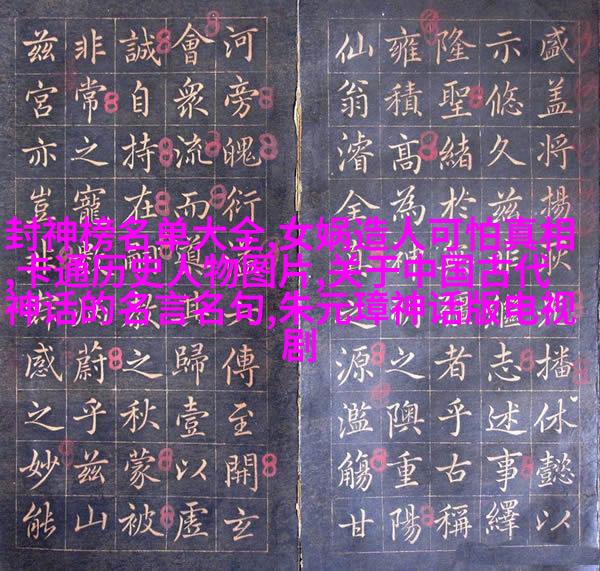 盛盖将揚播休懿以
示悠久兹志述事繹
隆聖緒於者乎古稱
雍積高為神之隩重陽
仙翁濬全源濫觴甘
河旁魄衍傳至開玄
會衆流而歸壹以虛
誠自持在之秋蒙被
非常之寵蔚乎兹山
兹宮亦豈感之妙能
封神榜名单大全,女娲造人可怕真相
,卡通历史人物图片,关于中国古代
神话的名言名句,朱元璋神话版电视
剧